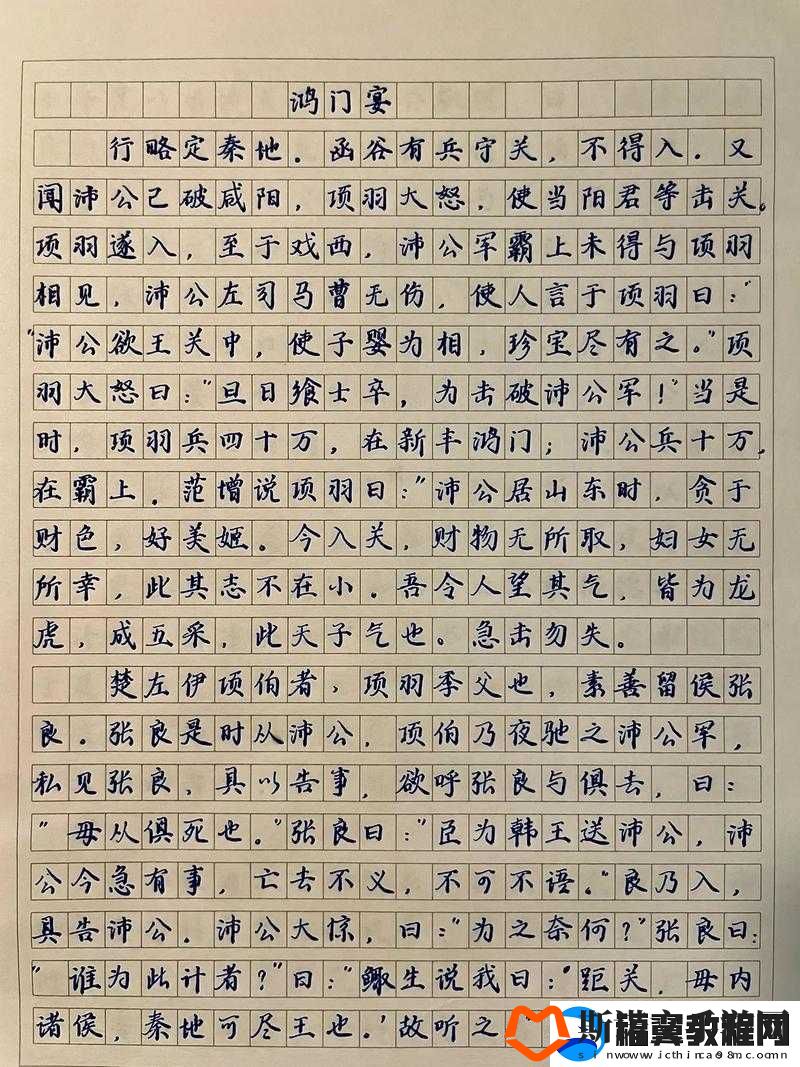 鸿门宴
行略定秦地．函谷有兵守关，不得入．又
闻沛公已破咸阳，项羽大怒，使当阳君等击关。
项羽遂入，至于戏西，沛公军霸上未得与项羽
相见，沛公左司马曹无伤，使人言于项羽曰："
"沛公欲王关中，使子婴为相，珍宝尽有之。"项
羽大怒曰："旦日飨士卒，为击破沛公军！"当是
时，项羽兵四十万，在新丰鸿门；沛公兵十万，
在霸上．范增说项羽曰："沛公居山东时，贪于
财色，好美姬。今入关，财物无所取，妇女无
所幸，此其志不在小．吾令人望其气，皆为龙
虎，成五采，此天子气也。急击勿失。
楚左伊项伯者，项羽季父也，素善留侯张
良．张良是时从沛公，项伯乃夜驰之沛公军，
私见张良，具以告事，欲呼张良与俱去，曰：
"毋从俱死也。"张良曰："臣为韩王送沛公，沛
公今急有事，亡去不义，不可不语。"良乃入，
具告沛公．沛公大惊，曰："为之奈何？"张良曰：
"谁为此计者？"曰："鲰生说我曰：'距关，毋内
诸侯，秦地可尽王也．'故听之．"